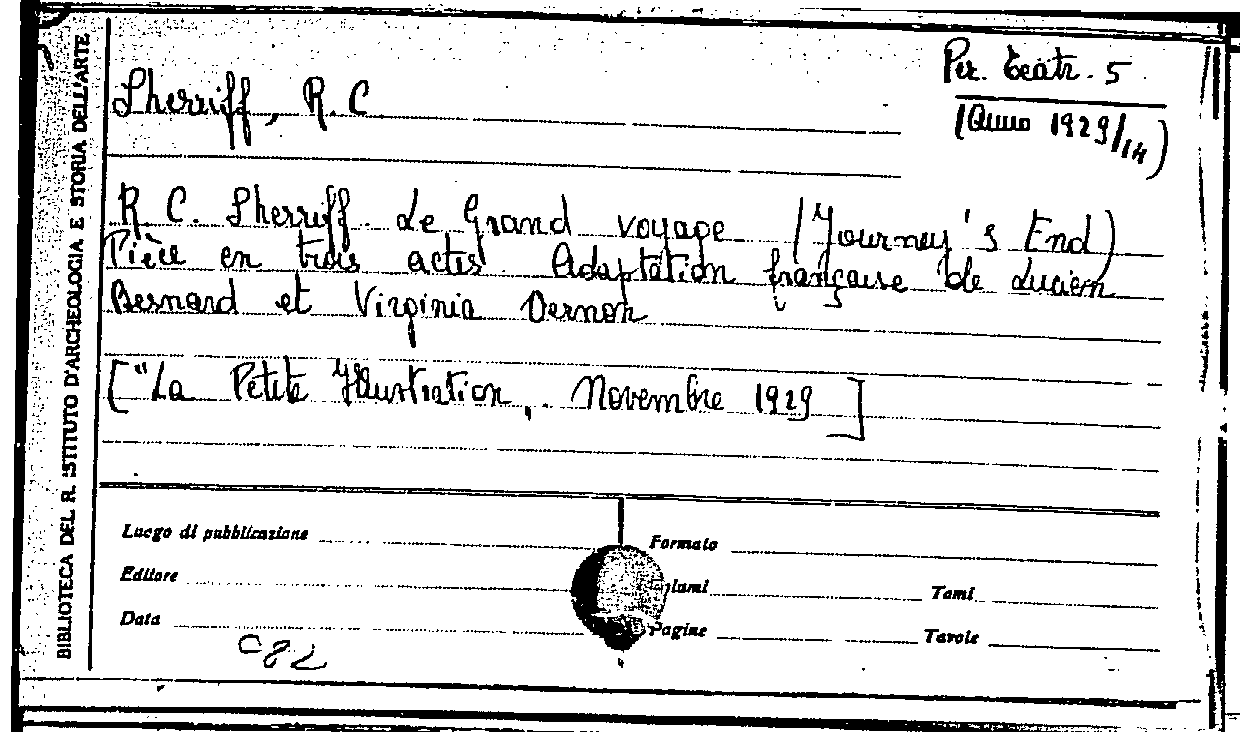 BIBLIOTECA DEL R. ISTITUTO D'ARCHEOLOGIA E STORIA DELL'ARTE
Per. Teatr. 5
(Anno 1929/14)
Sherriff, R. C
R. C. Sherriff. Le Grand voyage (Journey's End)
Pièce en trois actes Adaptation française de Lucien
Besnard et Virginia Vernon
["La Petite Illustration, Novembre 1929]
Luogo di pubblicazione
Formato
Editore
Data
Pagine
Tomi
Tavole